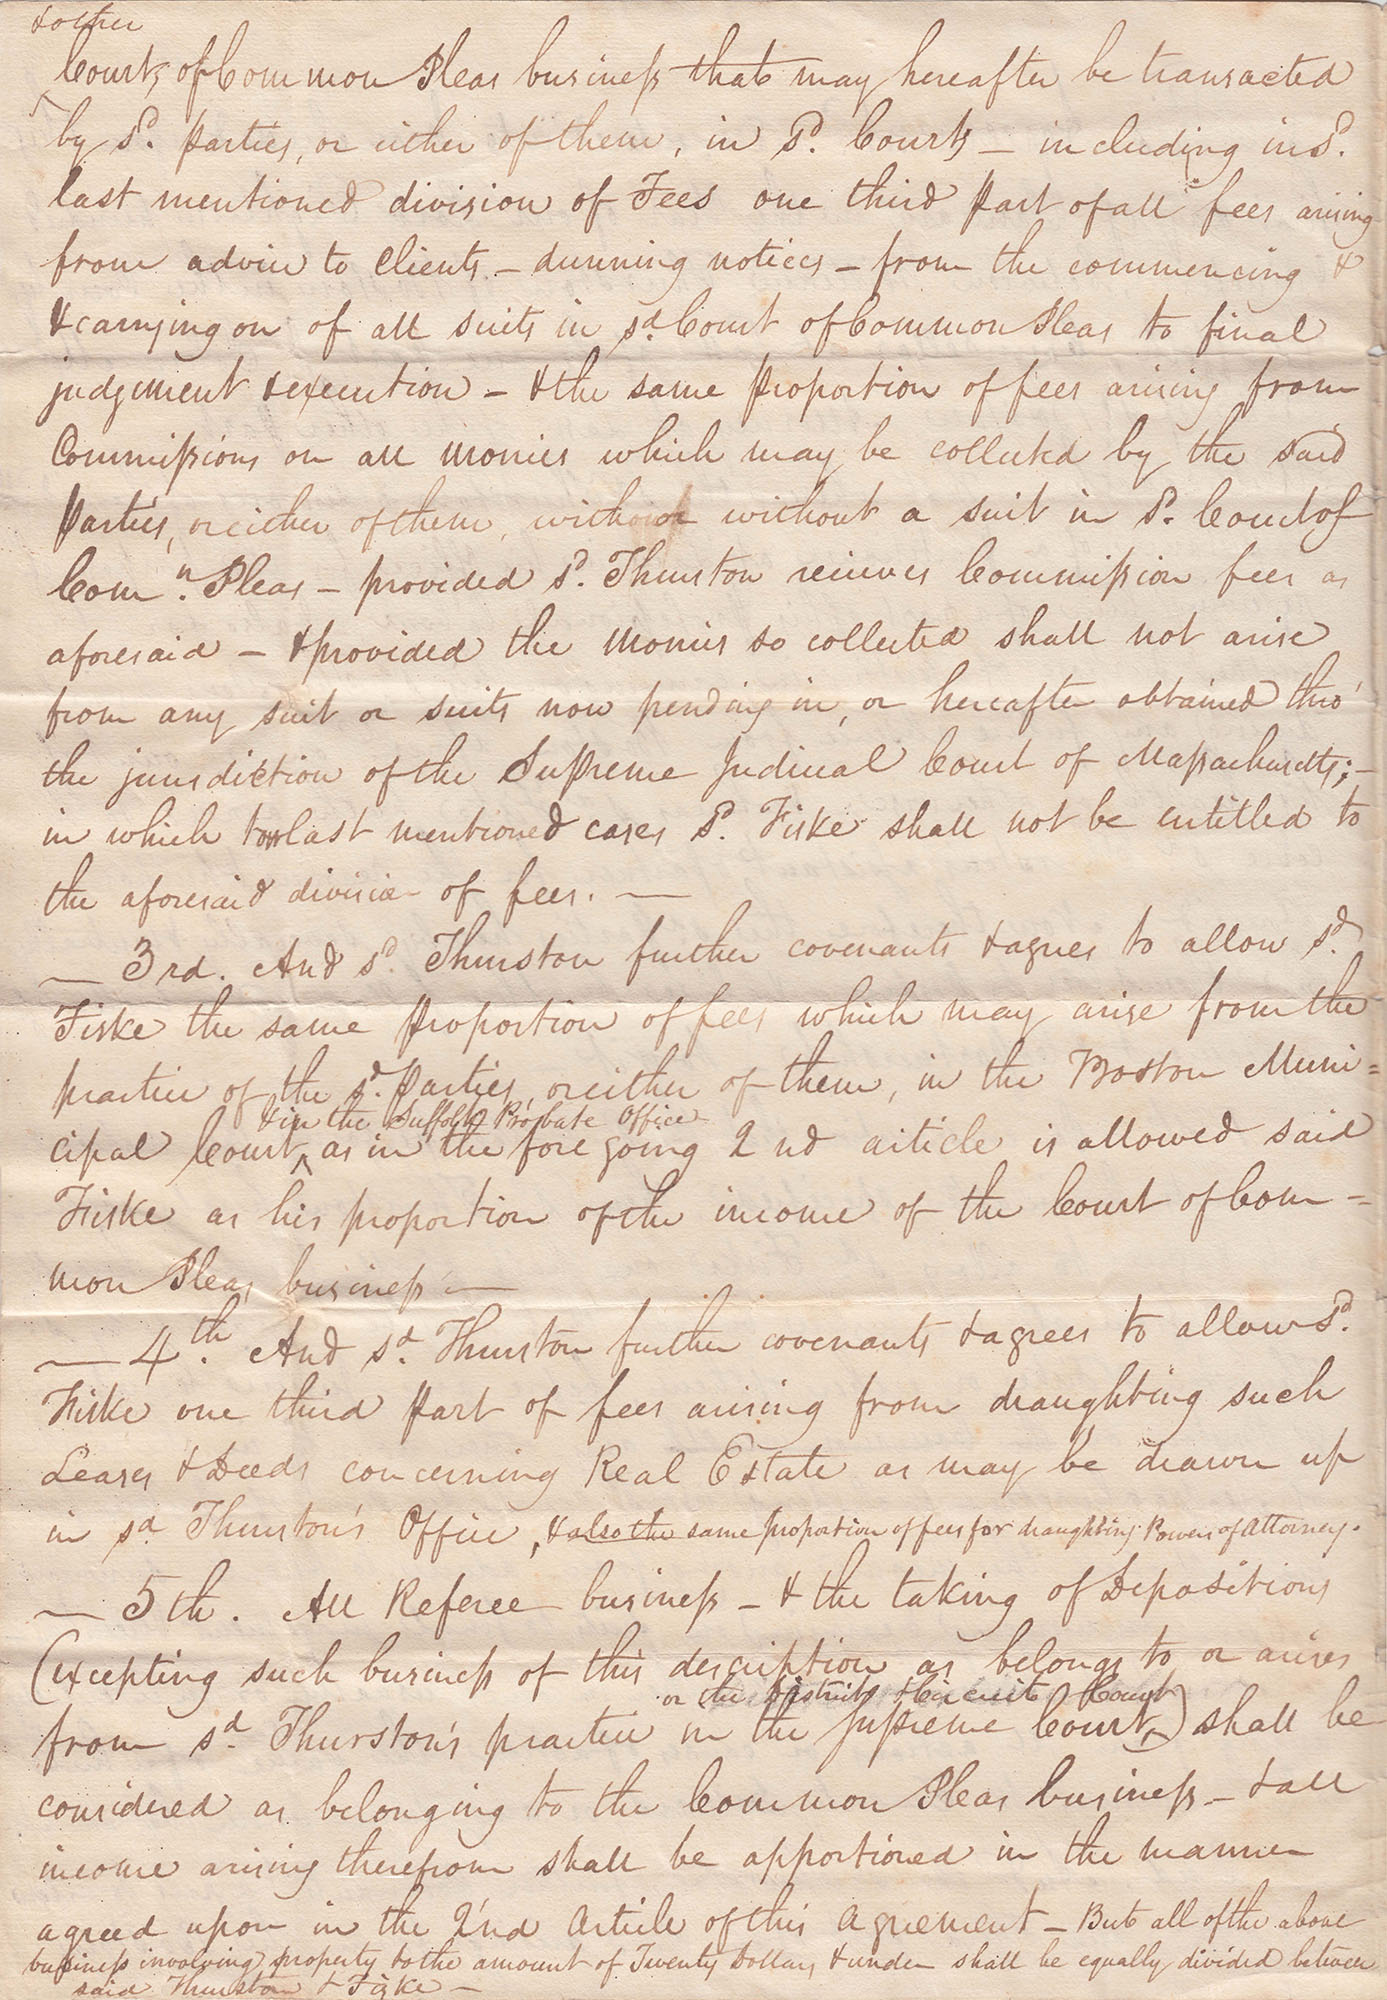 & other
Courts of Common Pleas business that may hereafter be transacted
by sd. parties, or either of them, in sd. Courts – including in sd.
last mentioned division of Fees one third part of all fees arising
from advice to Clients – dunning notices – from the commencing &
& carrying on of all suits in sd. Court of Common Pleas to final
judgement & execution – & the same proportion of fees arising from
Commissions on all monies which may be collected by the said
parties, or either of them, without a suit in sd. Court of
Comn. Pleas – provided sd. Thurston recieves Commission fees as
aforesaid – & provided the monies so collected shall not arise
from any suit or suits now pending in, or hereafter obtained thro'
the jurisdiction of the Supreme Judicial Court of Massachusetts; –
in which last mentioned cases sd. Fiske shall not be entitled to
the aforesaid division of fees. —
— 3rd. And sd. Thurston further covenants & agrees to allow sd.
Fiske the same proportion of fees which may arise from the
practice of the sd. parties, or either of them, in the Boston Muni=
& in the Suffolk Probate Office
cipal Court ^ as in the foregoing 2nd article is allowed said
Fiske as his proportion of the income of the Court of Com=
mon Pleas business —
— 4th. And sd. Thurston further covenants & agrees to allow sd.
Fiske one third part of fees arising from draughting such
Leases & Deeds concerning Real Estate as may be drawn up
in sd. Thurston's Office, & also the same proportion of fees for draughting Powers of Attorney.
— 5th. All Referee business – & the taking of Depositions
(excepting such business of this description as belongs to or arises
or the District & Circuit Court
from sd. Thurston's practice in the Supreme Court) shall be
considered as belonging to the Common Pleas business – & all
income arising therefrom shall be apportioned in the manner
agreed upon in the 2nd article of this agreement – But all of the above
business involving property to the amount of Twenty Dollars & under shall be equally divided between
said Thurston & Fiske –